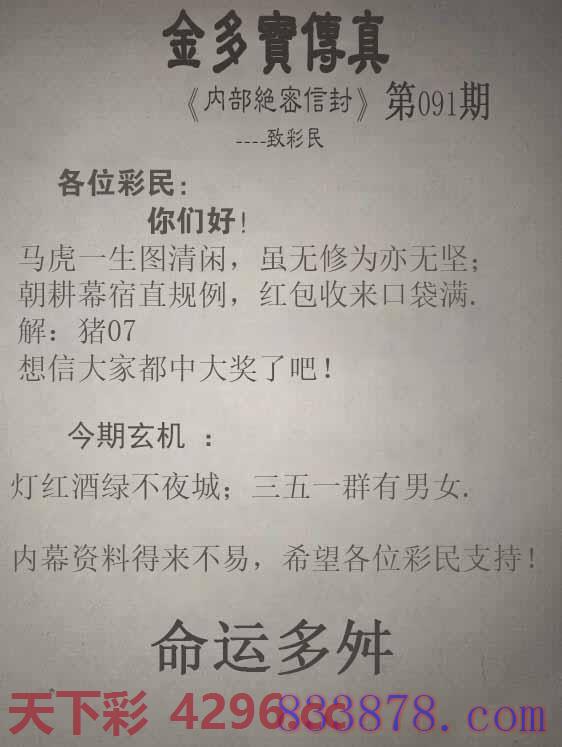 金多寳傳真
《内部絶密信封》第091期
----致彩民
各位彩民:
你们好!
马虎一生图清闲，虽无修为亦无坚;
朝耕幕宿直规例，红包收来口袋满.
解：猪07
想信大家都中大奖了吧!
今期玄机 ：
灯红酒绿不夜城；三五一群有男女.
内幕资料得来不易，希望各位彩民支持!
命运多舛
天下彩 4296.cc
883878.com